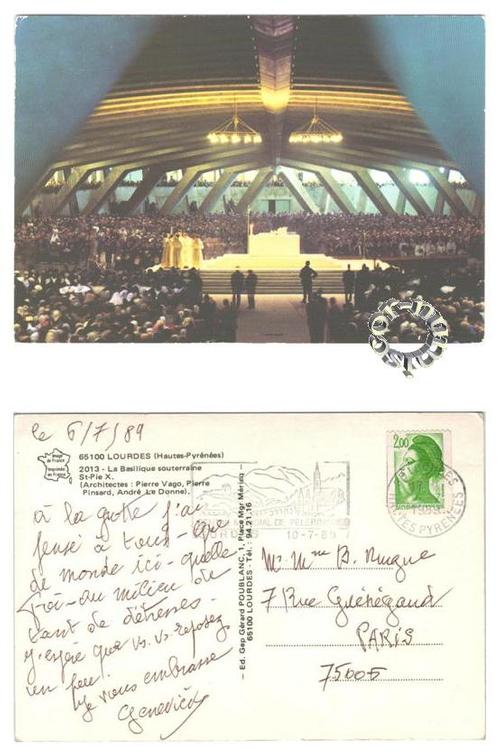 le 6/7/89
Image de France
Imprimée en France
65100 LOURDES (Hautes-Pyrénées)
2013 - La Basilique souterraine
St-Pie X.
(Architectes : Pierre Vago, Pierre
Pinsard, André Le Donné).
à la grotte j'ai
pensé à tous - que
de monde ici - quelle
foi - au milieu de
tant de détresses -
J'espère que vs. vs. reposez
un peu.
Je vous embrasse
Geneviève
— Ed. Gep Gérard POUBLANC, 1, Place Mgr Méricq —
65100 LOURDES - Tél. : 94.21.16
2,00
MONDIAL DE PELERINAGE
LOURDES 10-7-89
HAUTES PYRENEES
Mr Mme B.
7 Rue Guénégaud
PARIS
75006